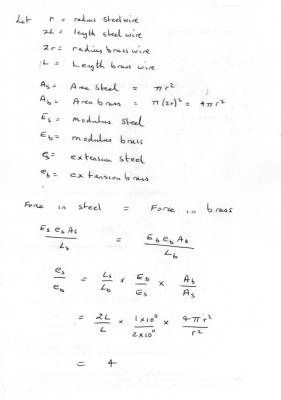 Let r = radius steel wire
2L = length steel wire
2r = radius brass wire
L = Length brass wire
As = Area Steel = πr²
Ab = Area brass = π(2r)² = 4πr²
Es = Modulus Steel
Eb = modulus brass
es = extension steel
eb = extension brass
Force in steel = Force in brass
Es eb As / Ls = Eb eb Ab / Lb
es / eb = Ls / Lb × Eb / Es × Ab / As
= 2L / L × 1×10¹¹ / 2×10¹¹ × 4πr² / r²
= 4